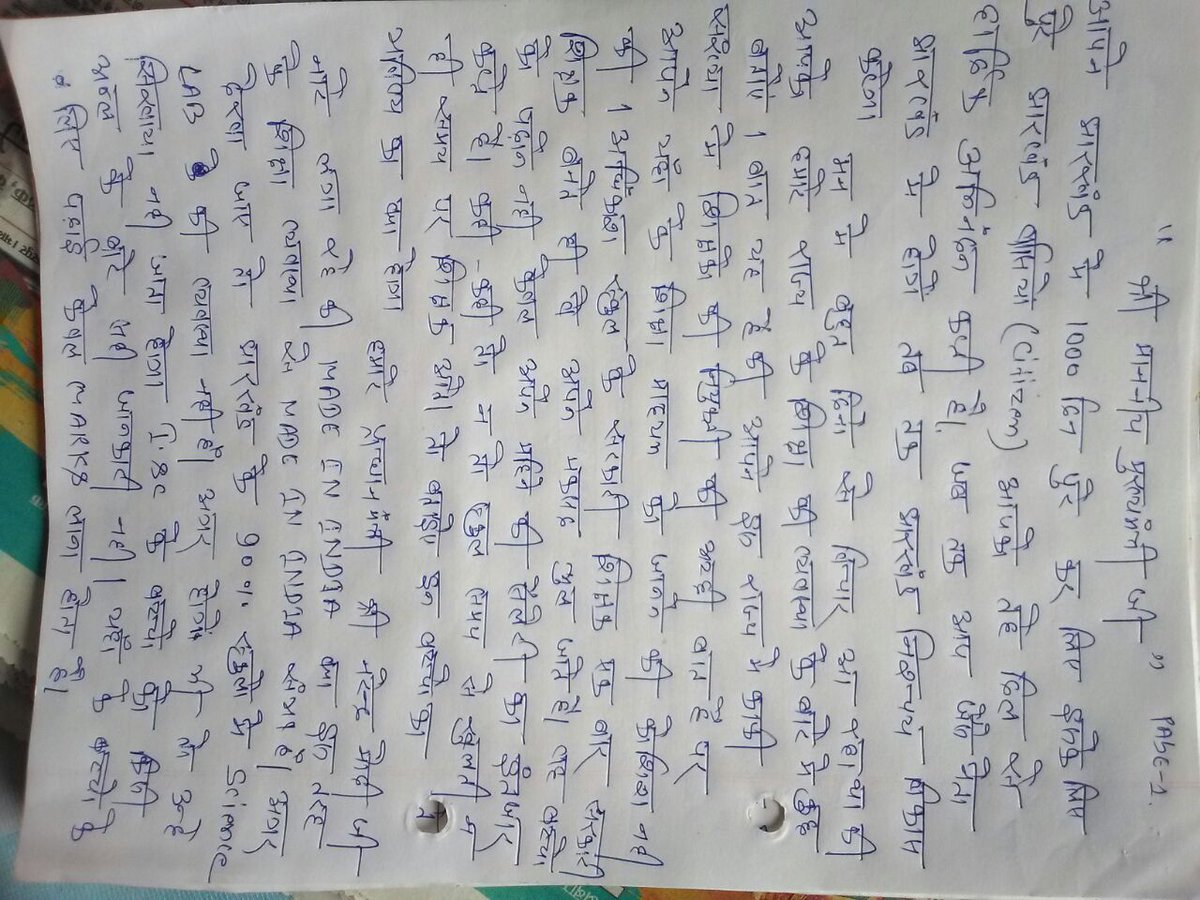 PAGE-1.
" श्री माननीय मुख्यमंत्री जी "
आपने झारखंड में 1000 दिन पुरे कर लिए इसके लिए
पुरे झारखंड वासियों (Citizen) आपको तेह दिल से
हार्दिक अभिनंदन करते है। जब तक आप जैसे नेता
झारखंड में होगें तब तक झारखंड निश्चय विकास
करेगा
मन में बहुत दिनो से विचार आ रहा था की
आपको हमारे राज्य के शिक्षा की व्यवस्था के बारे में कुछ
बताॅए 1 बात यह है की आपने इस राज्य में काफी
संख्या में शिक्षको की नियुक्ती की अच्छी बात है पर
आपने यॅहा के शिक्षा माध्यम को जानने की कोशिश नही
की 1 अधिकांश स्कुल के सरकारी शिक्षक एक बार सरकारी
शिक्षक बनते ही वे अपने मकसद भुल जाते है। वह बच्चो
को पढ़ाने नही केवल अपने महिने की सैलेरी का इंतजार
करते है। कभी-कभी तो न तो स्कुल समय से खुलती न
ही समय पर शिक्षक आते। तो बोलिए इन बच्चो का
भविष्य का क्या होगा
हमारे प्रधानमंत्री श्री नरेन्द्र मोदी जी
नारे लगा रहे की MADE IN INDIA क्या इस तरह
के शिक्षा व्यवस्था से MADE IN INDIA संभव है। अगर
देखा जाए तो झारखंड के 90% स्कुलो में Science
LAB की व्यवस्था नही है। अगर होगें भी तो उन्हे
सिखलाया नही जाता होगा I.SC के बच्चो को किसी
के बारे नही जानकारी नही। यॅहा के बच्चो के
लिए पढ़ाई केवल MARKS लाना होता है।